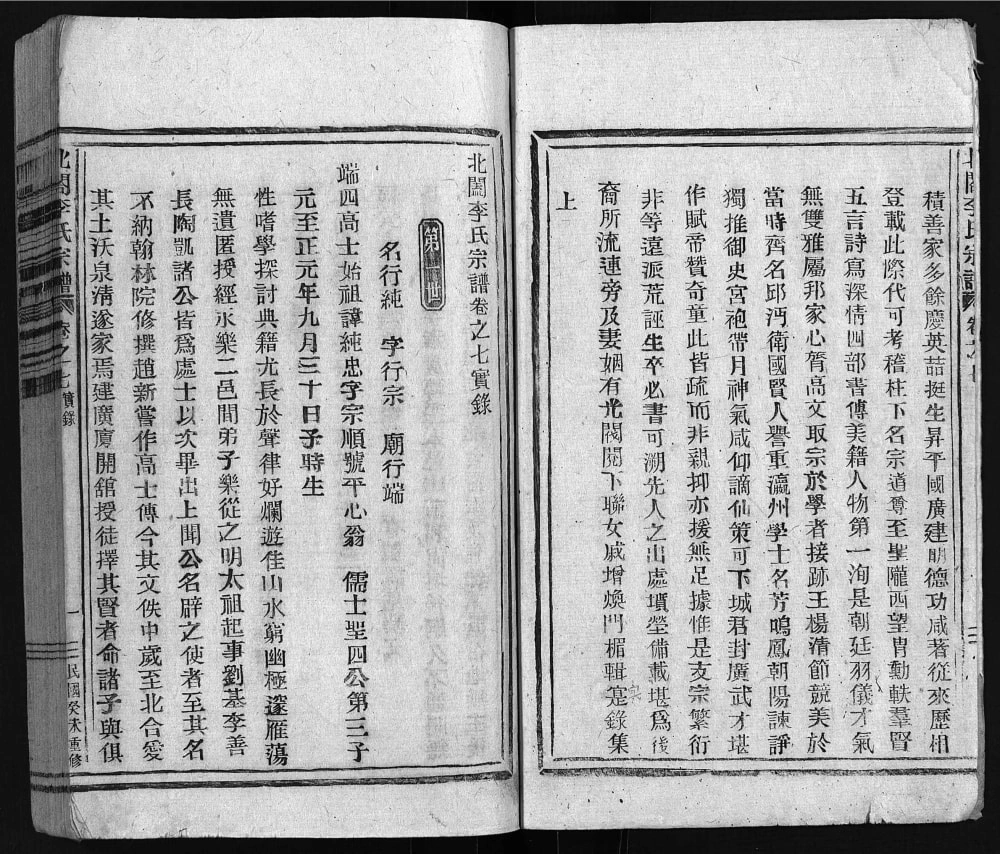 積善家多餘慶英喆挺生昇平國廣建明德功咸著從來歷相
登載此際代可考稽柱下名宗道尊至聖隴西望胄勳軼羣賢
五言詩寫深情四部書傳美籍人物第一洵是朝廷羽儀才氣
無雙雅屬邦家心膂高文取宗於學者接跡王楊清節競美於
當時齊名邱沔衛國賢人譽重瀛州學士名芳鳴鳳朝陽諫諍
獨推御史宮袍帶月神氣咸仰謫仙策可下城君封廣武才堪
作賦帝贊奇童此皆疏而非親抑亦援無足據惟是支宗繁衍
非等遠派荒誣生卒必書可溯先人之出處墳塋備載堪爲後
裔所流連旁及妻姻有光閥閱下聯女戚增煥門楣輯寔錄集
上
北閣李氏宗譜卷之七實錄
第一世
名行純 字行宗 廟行端
端四高士始祖諱純忠字宗順號平心翁 儒士聖四公第三子
元至正元年九月三十日子時生
性嗜學探討典籍尤長於聲律好爛遊佳山水窮幽極邃雁蕩
無遺匿授經永樂二邑間弟子樂從之明太祖起事劉基李善
長陶凱諸公皆爲處士以次畢出上聞公名辟之使者至其名
不納翰林院修撰趙新嘗作高士傳今其文佚中歲至北合愛
其土沃泉清遂家焉建廣廈開舘授徒擇其賢者命諸子與俱
北閣李氏宗譜 卷之七實錄 一 民國癸未重修